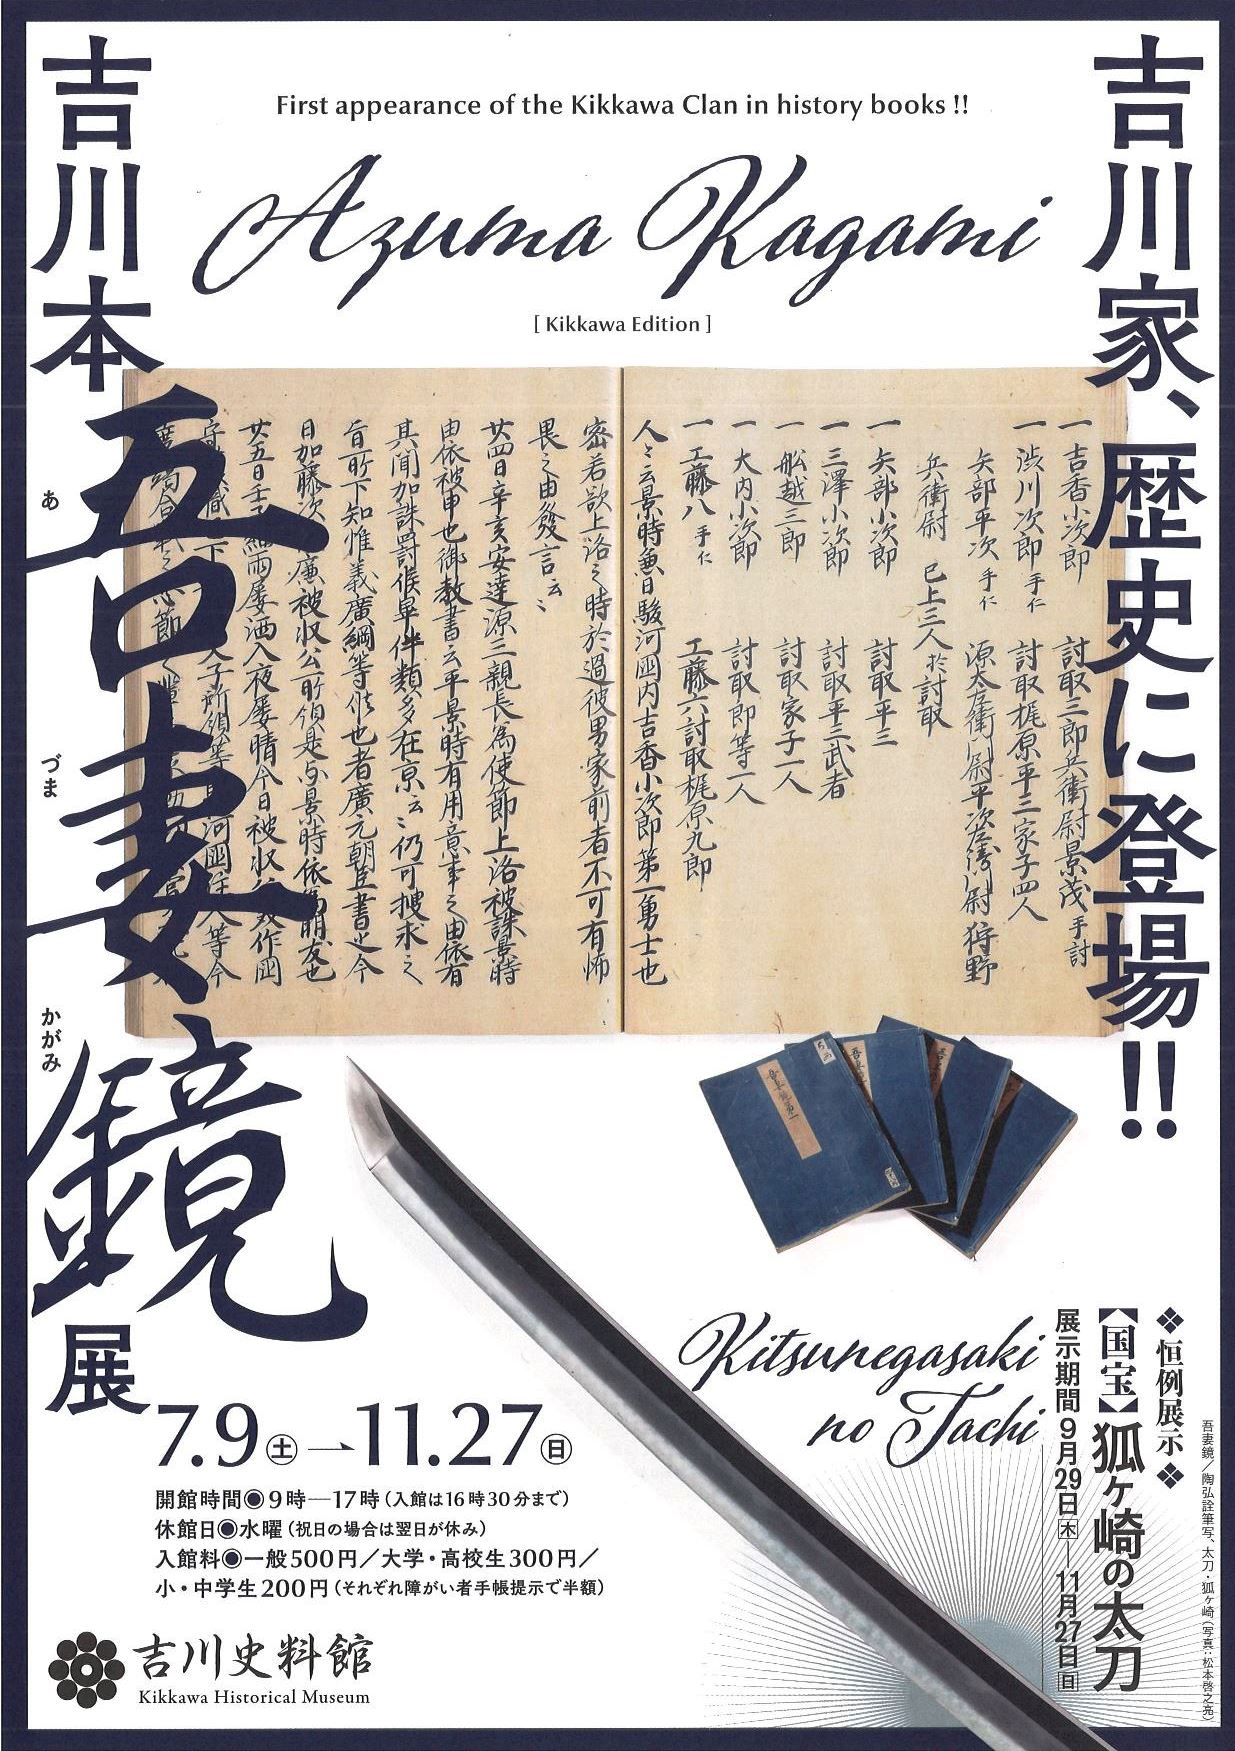 吉川家、歴史に登場!!
First appearance of the Kikkawa Clan in history books !!
Azuma Kagami
[ Kikkawa Edition ]
吉川本
吾妻鏡
あ
づま
かがみ
展
一 吉香小次郎 討取三郎兵衛尉景茂 手討
一 渋川次郎 手仁 討取梶原平三家子四人
矢部平次 手仁 源太左衛尉平次左衛尉 狩野
兵衛尉 已上三人 於討取
一 矢部小次郎 討取平三
一 三澤小次郎 討取平三武者
一 船越三郎 討取家子一人
一 大内小次郎 討取郎等一人
一 工藤八 手仁 工藤六討取梶原九郎
人々云景時兼日駿河國内吉香小次郎第一勇士也
密若欲上洛之時於過彼男家前者不可有怖
畏之由發言云々
廿四日辛亥安達源三親長為使節上洛被誅景時
由依被申也御教書云平景時有用意事之由依有
其聞加誅罰候畢伴類多在京云々仍可捜求之
旨所下知惟義廣綱等候也者廣元朝臣書之今
吾妻鏡第一
Kitsunegasaki
no Tachi
❖恒例展示❖
【国宝】狐ヶ崎の太刀
展示期間 9月29日㊍—11月27日㊐
吾妻鏡/陶弘詮筆写、太刀・狐ヶ崎(写真:松本啓之亮)
7.9㊏→11.27㊐
開館時間◉9時—17時(入館は16時30分まで)
休館日◉水曜(祝日の場合は翌日が休み)
入館料◉一般500円/大学・高校生300円/
小・中学生200円(それぞれ障がい者手帳提示で半額)
吉川史料館
Kikkawa Historical Museum